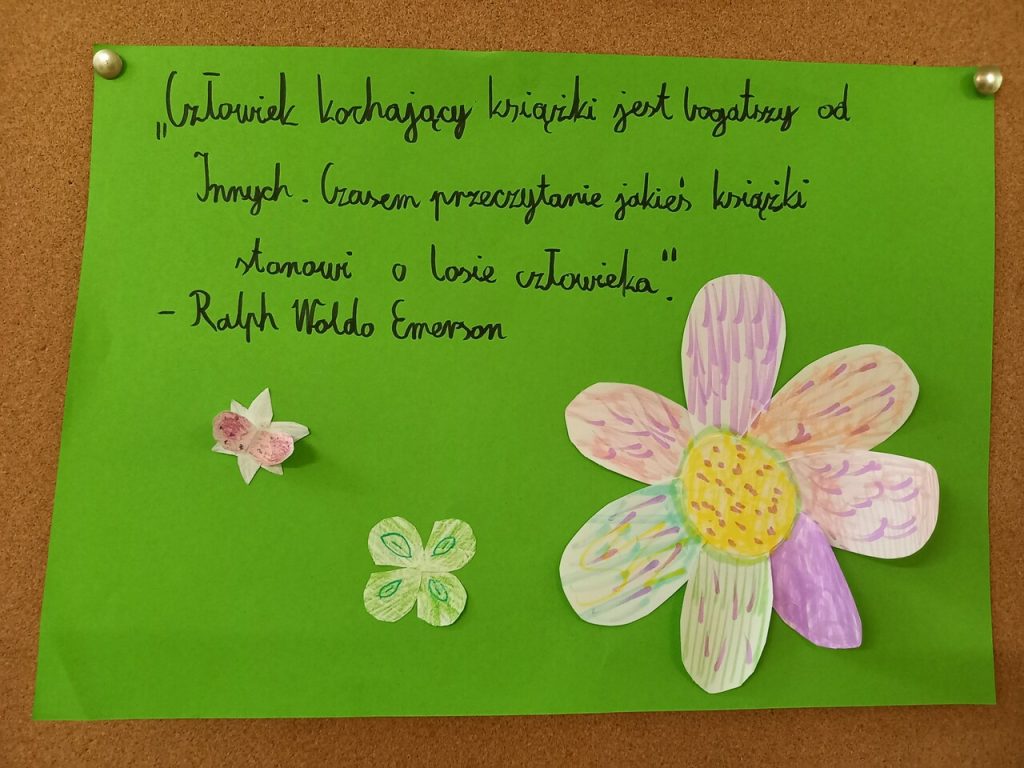 „Człowiek kochający książki jest bogatszy od
Innych. Czasem przeczytanie jakieś książki
stanowi o losie człowieka".
- Ralph Waldo Emerson